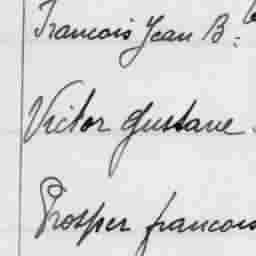 Francois Jean B:
Victor Gustave
Prosper francois